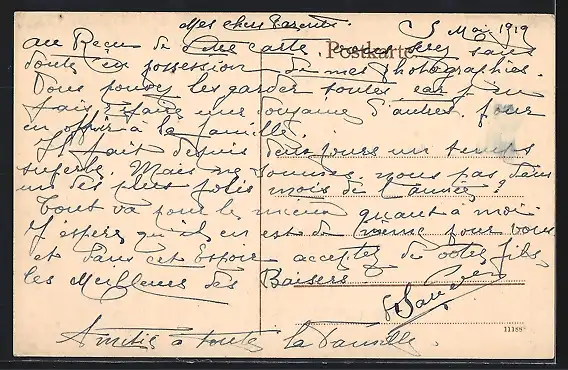 Mes chers Parents. 5 Mai 1919
Postkarte
au Reçu de cette carte. vous serez sans
doute en possession de mes photographies.
Vous pouvez les garder toutes car j'en
fais refaire une douzaine d'autres. pour
en offrir à la famille.
Il fait depuis deux jours un temps
superbe. Mais ne sommes nous pas dans
un des plus jolis mois de l'année?
Tout va pour le mieux quant à moi
J'espère qu'il en est de même pour vous
et dans cet Espoir acceptez de votre fils,
les Meilleurs des Baisers.
Amitié à toute la Famille.
11188